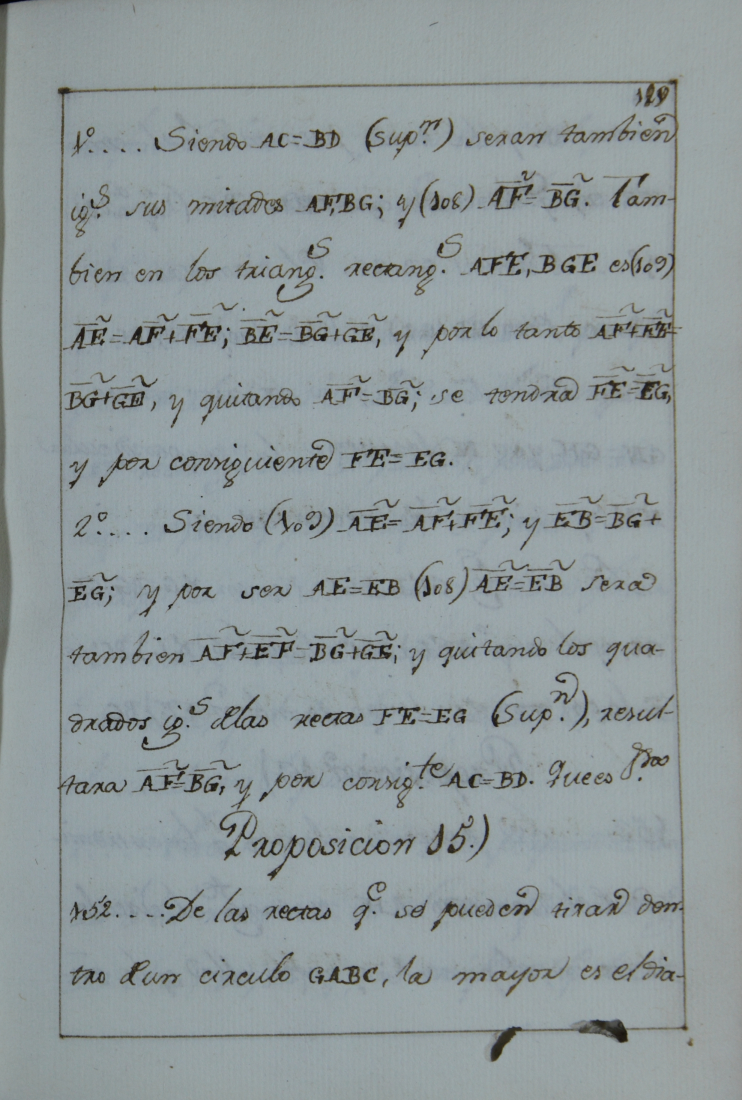 129
1º.... Siendo AC=BD (supⁿ.) seran tambien
igˢ. sus mitades AF,BG; y (108) A͞F²= B͞G². Tam-
bien en los triangˢ. rectangˢ. AFE, BGE es (109)
A͞E²=A͞F²+F͞E²; B͞E²=B͞G²+G͞E², y por lo tanto A͞F²+F͞E²=
B͞G²+G͞E², y quitando A͞F²=B͞G²; se tendra F͞E²=E͞G²,
y por consiguiente FE=EG.
2º.... Siendo (109) A͞E²= A͞F²+F͞E²; y E͞B²=B͞G²+
E͞G²; y por ser AE=EB (108) A͞E²=E͞B² sera
tambien A͞F²+E͞F²=B͞G²+G͞E²; y quitando los qua-
drados igˢ. dlas rectas FE=EG (Supⁿ.), resul-
tara A͞F²=B͞G², y por consigᵗᵉ. AC=BD. Que es
Proposicion 15.)
152.... De las rectas qᵉ. se pueden tirar den-
tro dun circulo GABC, la mayor es el dia-